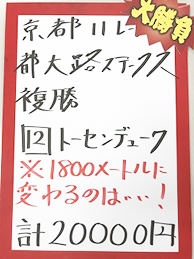 京都11レース
大勝負
都大路ステークス
複勝
12 トーセンデューク
※1800メートルに
変わるのは…!
計20000円